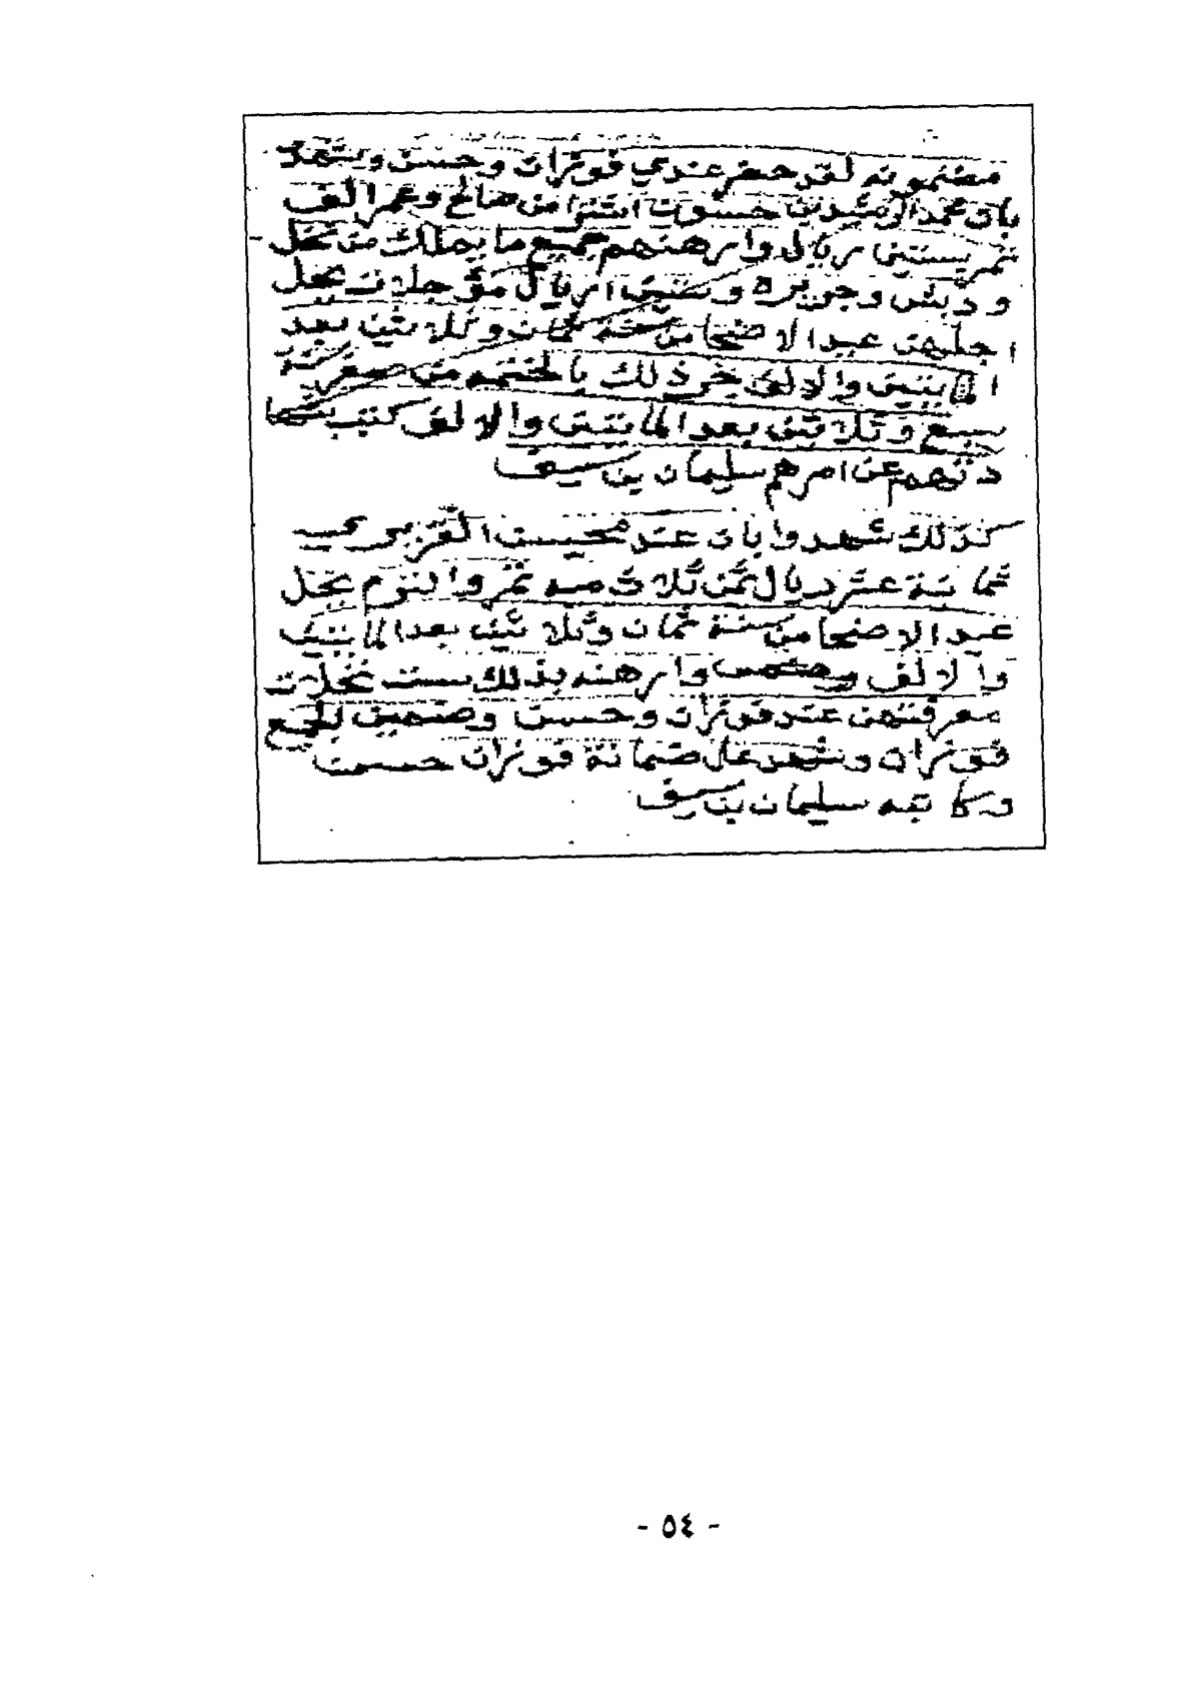 مضمونه لقد حضر عندي فوزان وحسن ويشهد
بان محمد الرشيد بن حسون اشترا من صالح وعمر الف
تمر بستين ريال وارهنهم جميع ما يملك من نخل
ودبش وجريره وستين اريال مؤجلات يحل
اجلهن عيد الاضحا من سنة ثمان وثلاثين بعد
المايتين والالف جرى ذلك بالختمه من صفر سنة
سبع وثلاثين بعد المايتين والالف كتب
عن امرهم سليمان بن سيف
كذلك شهدوا بان عند محيسن
ثمانية عشر ريال ثمن ثلاث ميه تمر والزم يحل
عيد الاضحا من سنة ثمان وثلاثين بعد المايتين
والالف وارهنه بذلك ست نخلات
معرفتهن عند فوزان وحسن وضمين الجميع
فوزان وشهد على ضمانة فوزان حسن
وكاتبه سليمان بن سيف
- ٥٤ -